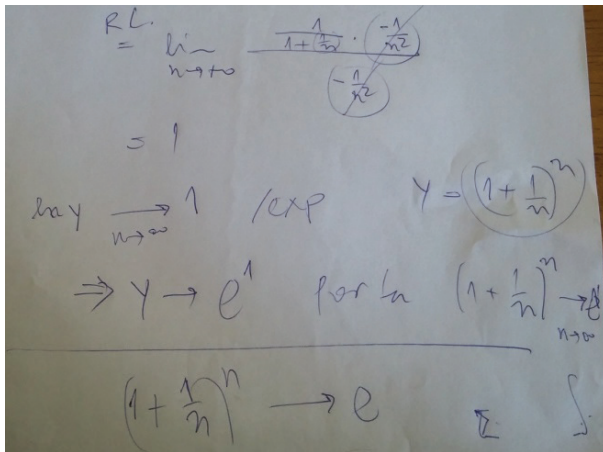 R L.
= lim n→+∞ (1/(1+(1/n)) · (-1/n²)) / (-1/n²)
= 1
ln y → 1 n→∞ /exp Y = ((1 + 1/n)^n)
⇒ Y → e^1 (1 + 1/n)^n → n→∞
(1 + 1/n)^n → e